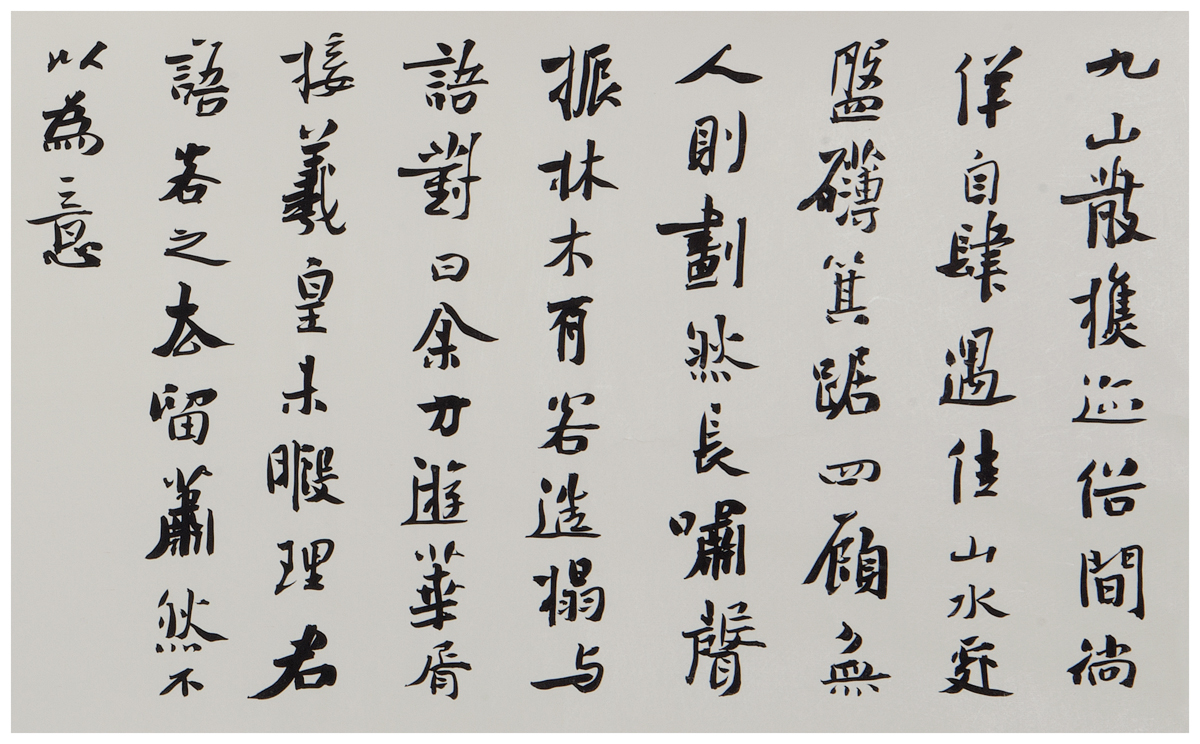 九山散樵迹俗間徜
徉自肆遇佳山水處
盤礴箕踞四顧無
人則劃然長嘯聲
振林木有客造榻与
語對曰余方遊華胥
接羲皇未暇理君
語客之去留蕭然不
以為意